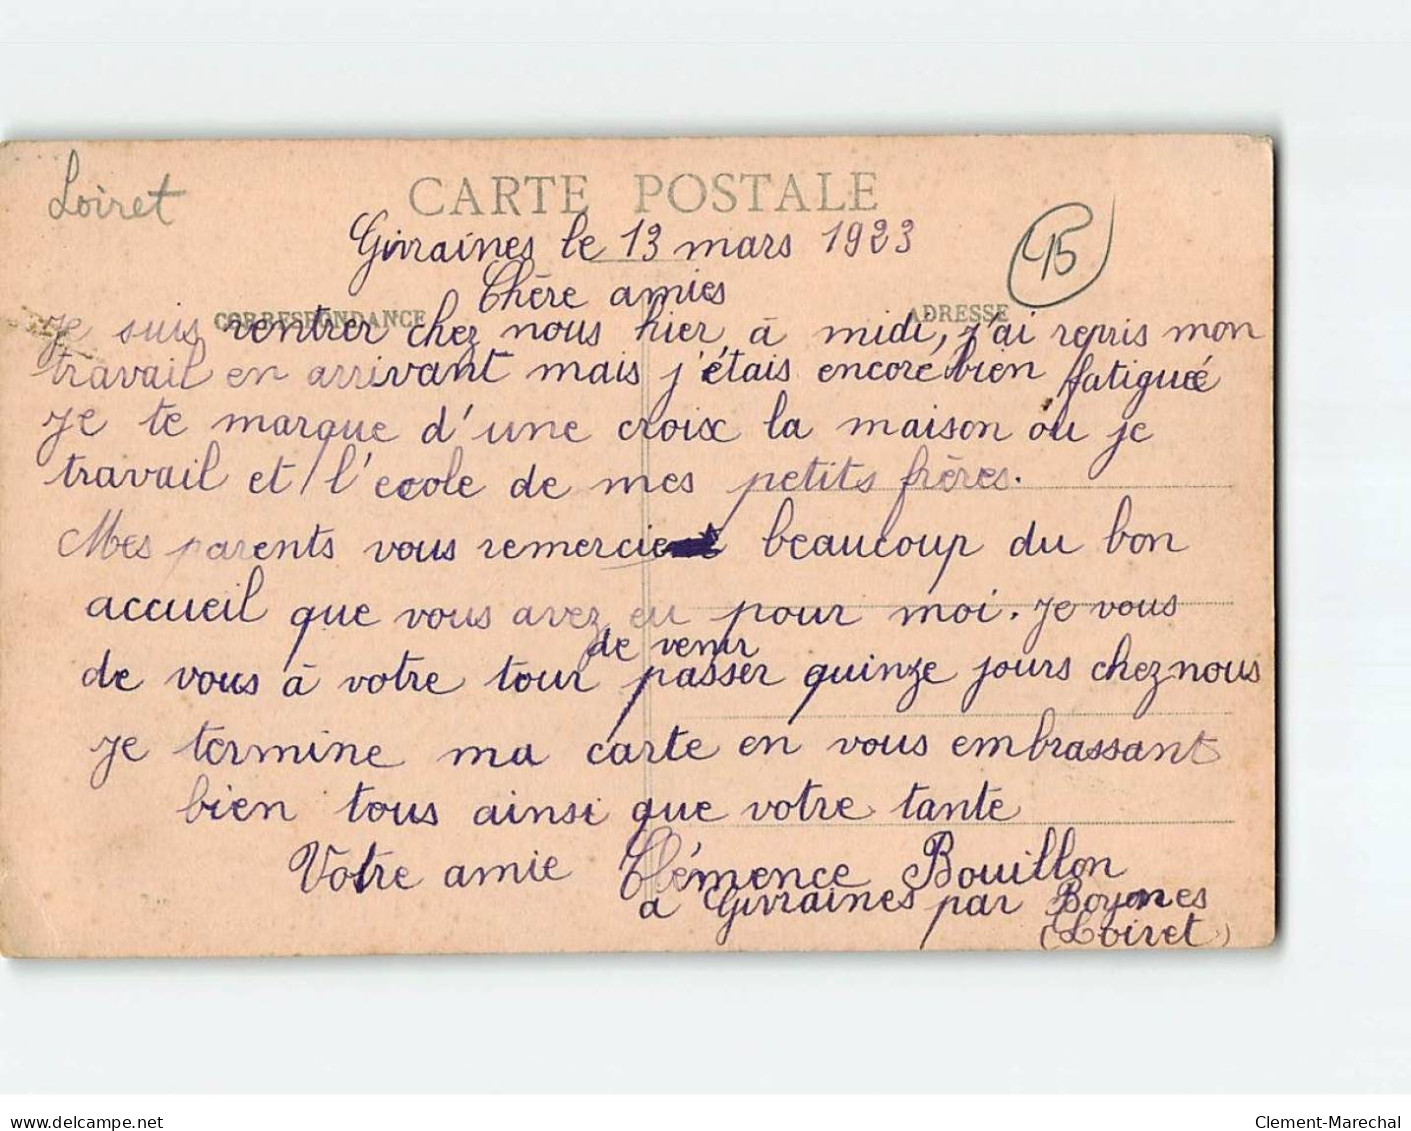 Loiret
CARTE POSTALE
Givraines le 13 mars 1923
45
Chère amies
CORRESPONDANCE
ADRESSE
Je suis rentrer chez nous hier à midi, j'ai repris mon
travail en arrivant mais j'étais encore bien fatiguée
Je te marque d'une croix la maison ou je
travail et l'ecole de mes petits frères.
Mes parents vous remercie beaucoup du bon
accueil que vous avez eu pour moi. Je vous
de venir
de vous à votre tour passer quinze jours chez nous
Je termine ma carte en vous embrassant
bien tous ainsi que votre tante
Votre amie Clémence Bouillon
a Givraines par Boynes
(Loiret)
www.delcampe.net
Clement-Marechal